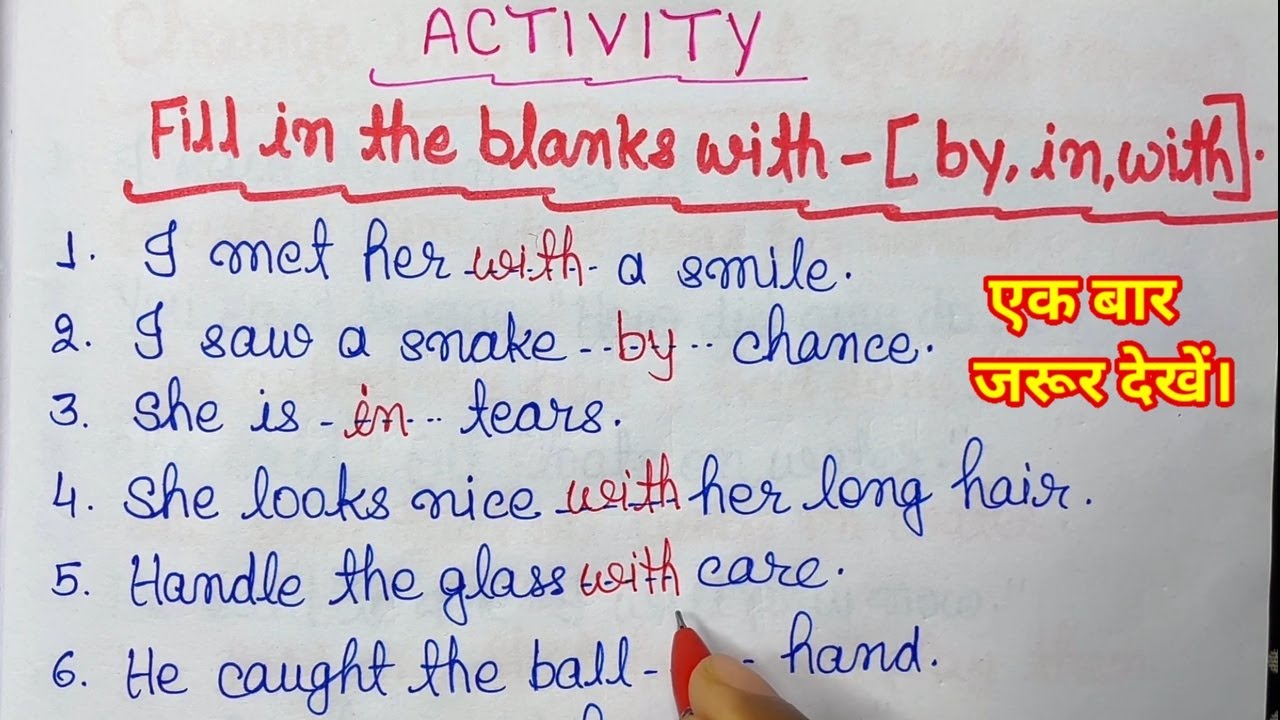 ACTIVITY
Fill in the blanks with - [by, in, with].
1. I met her with a smile.
2. I saw a snake by chance.
3. She is in tears.
4. She looks nice with her long hair.
5. Handle the glass with care.
6. He caught the ball - - hand.
एक बार
जरूर देखें।